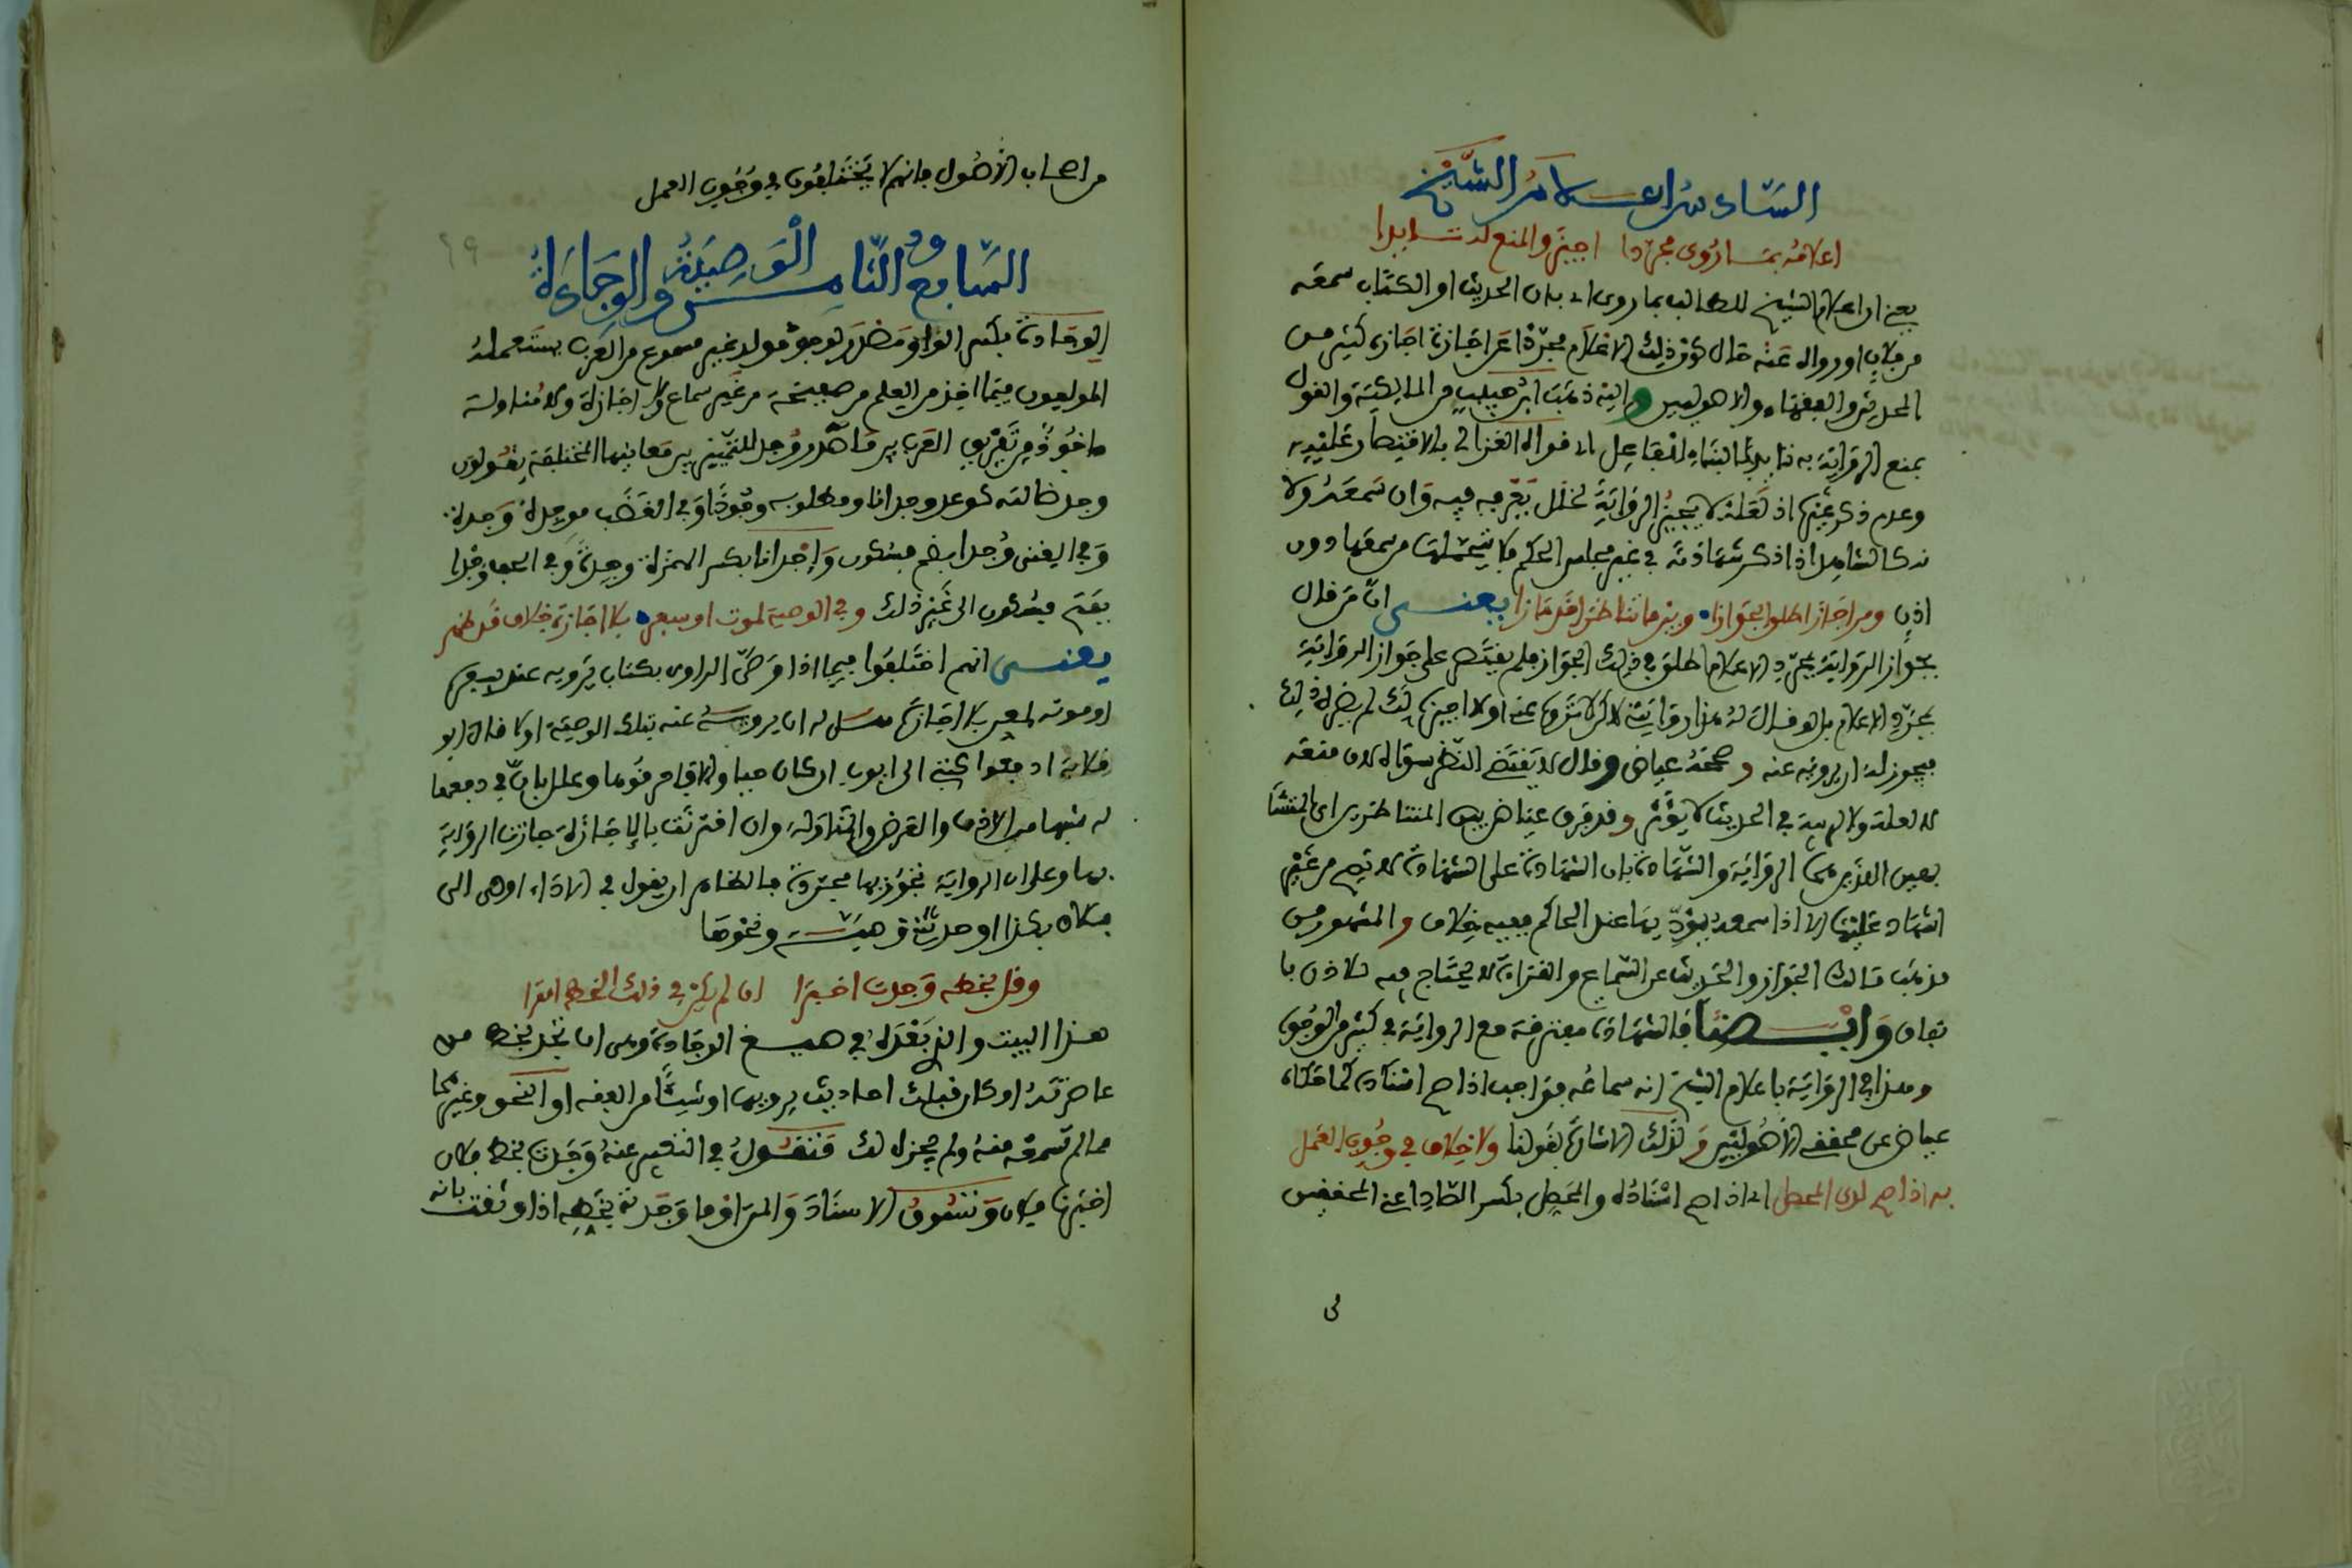 السادس اعلام الشيخ
اعلامه بما روى مجردا اجيز والمنع لدت ابدا
يعني ان اعلام الشيخ للطالب بما روى اي بان الحديث او الكتاب سمعه
من فلان او رواه عنه حال كون ذلك الاعلام مجردا عن اجازة اجازه كثير من
المحدثين والفقهاء والاصوليين واليه ذهب ابن حبيب من المالكية والقول
بمنع الرواية به ابدا بالبناء للفاعل اي قواه الغزالي بالاقتصار عليه
وعدم ذكر غيره اذ لعله لا يجيز الرواية لخلل يعرفه فيه وان سمعه ولا
بد كالشاهد اذا ذكر شهادته في غير مجلس الحكم فلا يتحملها من سمعها دون
اذن ومن اجاز اطلق الجوازا وبين ما تناظرا قد مازا يعني ان من قال
بجواز الرواية بمجرد الاعلام اطلق في ذلك الجواز فلم يقتصر على جواز الرواية
بمجرد الاعلام بل لو قال له هذا روايتي لاكن لا تروه عني او لا اجيزه لك لم يضره ذلك
فيجوز له ان يرويه عنه وصححه عياض وقال لا يقتضي النظر سواه لان منعه
لا لعلة ولا ريبة في الحديث لا يؤثر وقد فرق عياض بين المتناظرين اي المتشا
بهين الذين هما الرواية والشهادة بان الشهادة على الشهادة لا تصح من غير
اشهاد عليها الا اذا سمعه يؤديها عند الحاكم ففيه خلاف والمشهور من
مذهب مالك الجواز والحديث عن السماع والقراءة لا يحتاج فيه للاذن با
تفاق وايضا فالشهادة مفترقة مع الرواية في كثير من الوجوه
وهذا في الرواية باعلام الشيخ انه سماعه فواجب اذا صح اسناده كما حكاه
عياض عن محققي الاصوليين ولذلك الاشارة بقولنا ولا خلاف في وجوب العمل
به اذا صح لدى المحصل اي اذا صح اسناده والمحصل بكسر الصاد اعني المحققين
من اصحاب الاصول فانهم لا يختلفون في وجوب العمل
السابع والثامن الوصية والوجادة
الوجادة بكسر الواو مصدر لوجد مولد غير مسموع من العرب يستعمله
المولدون فيما اخذ من العلم من صحيفة من غير سماع ولا اجازة ولا مناولة
ماخوذ من تفريق العرب بين مصادر وجد للتمييز بين معانيها المختلفة يقولون
وجد ضالته كوعد وجدانا ومطلوبه وجودا وفي الغضب موجدة وجدة
وفي الغنى وجدا بضم فسكون واجدانا بكسر الهمزة وجدة وفي الحب وجدا
بفتح فسكون الى غير ذلك وفي الوصية لموت او سفر بلا اجازة خلاف قد ظهر
يعني انهم اختلفوا فيما اذا وصى الراوي بكتاب يرويه عند سفره
او موته لمعين بلا اجازة هل له ان يرويه عنه بتلك الوصية او لا قال ابو
قلابة ادفعوا كتبي الى ايوب ان كان حيا والا فاحرقوها وعلل بان في دفعها
له شبها من الاذن والعرض والمناولة وان اقترنت بالاجازة جازت الرواية
بها وعلى ان الرواية تجوز بها مجردة فالظاهر ان يقول في الاداء اوصى الى
فلان بكذا او حدثني وصية ونحوها
وقل بخطه وجدت اخبرا ان لم يكن في ذلك الخط امترا
هذا البيت والذي بعده في صيغ الوجادة وهي ان تجد بخط من
عاصرته او كان قبلك احاديث يرويها او شيئا من الفقه او النحو وغيرهما
مما لم تسمعه منه ولم يجزه لك فتقول في التعبير عنه وجدت بخط فلان
اخبرنا فلان وتسوق الاسناد والمتن او ما وجدته بخطه اذا وثقت بانه